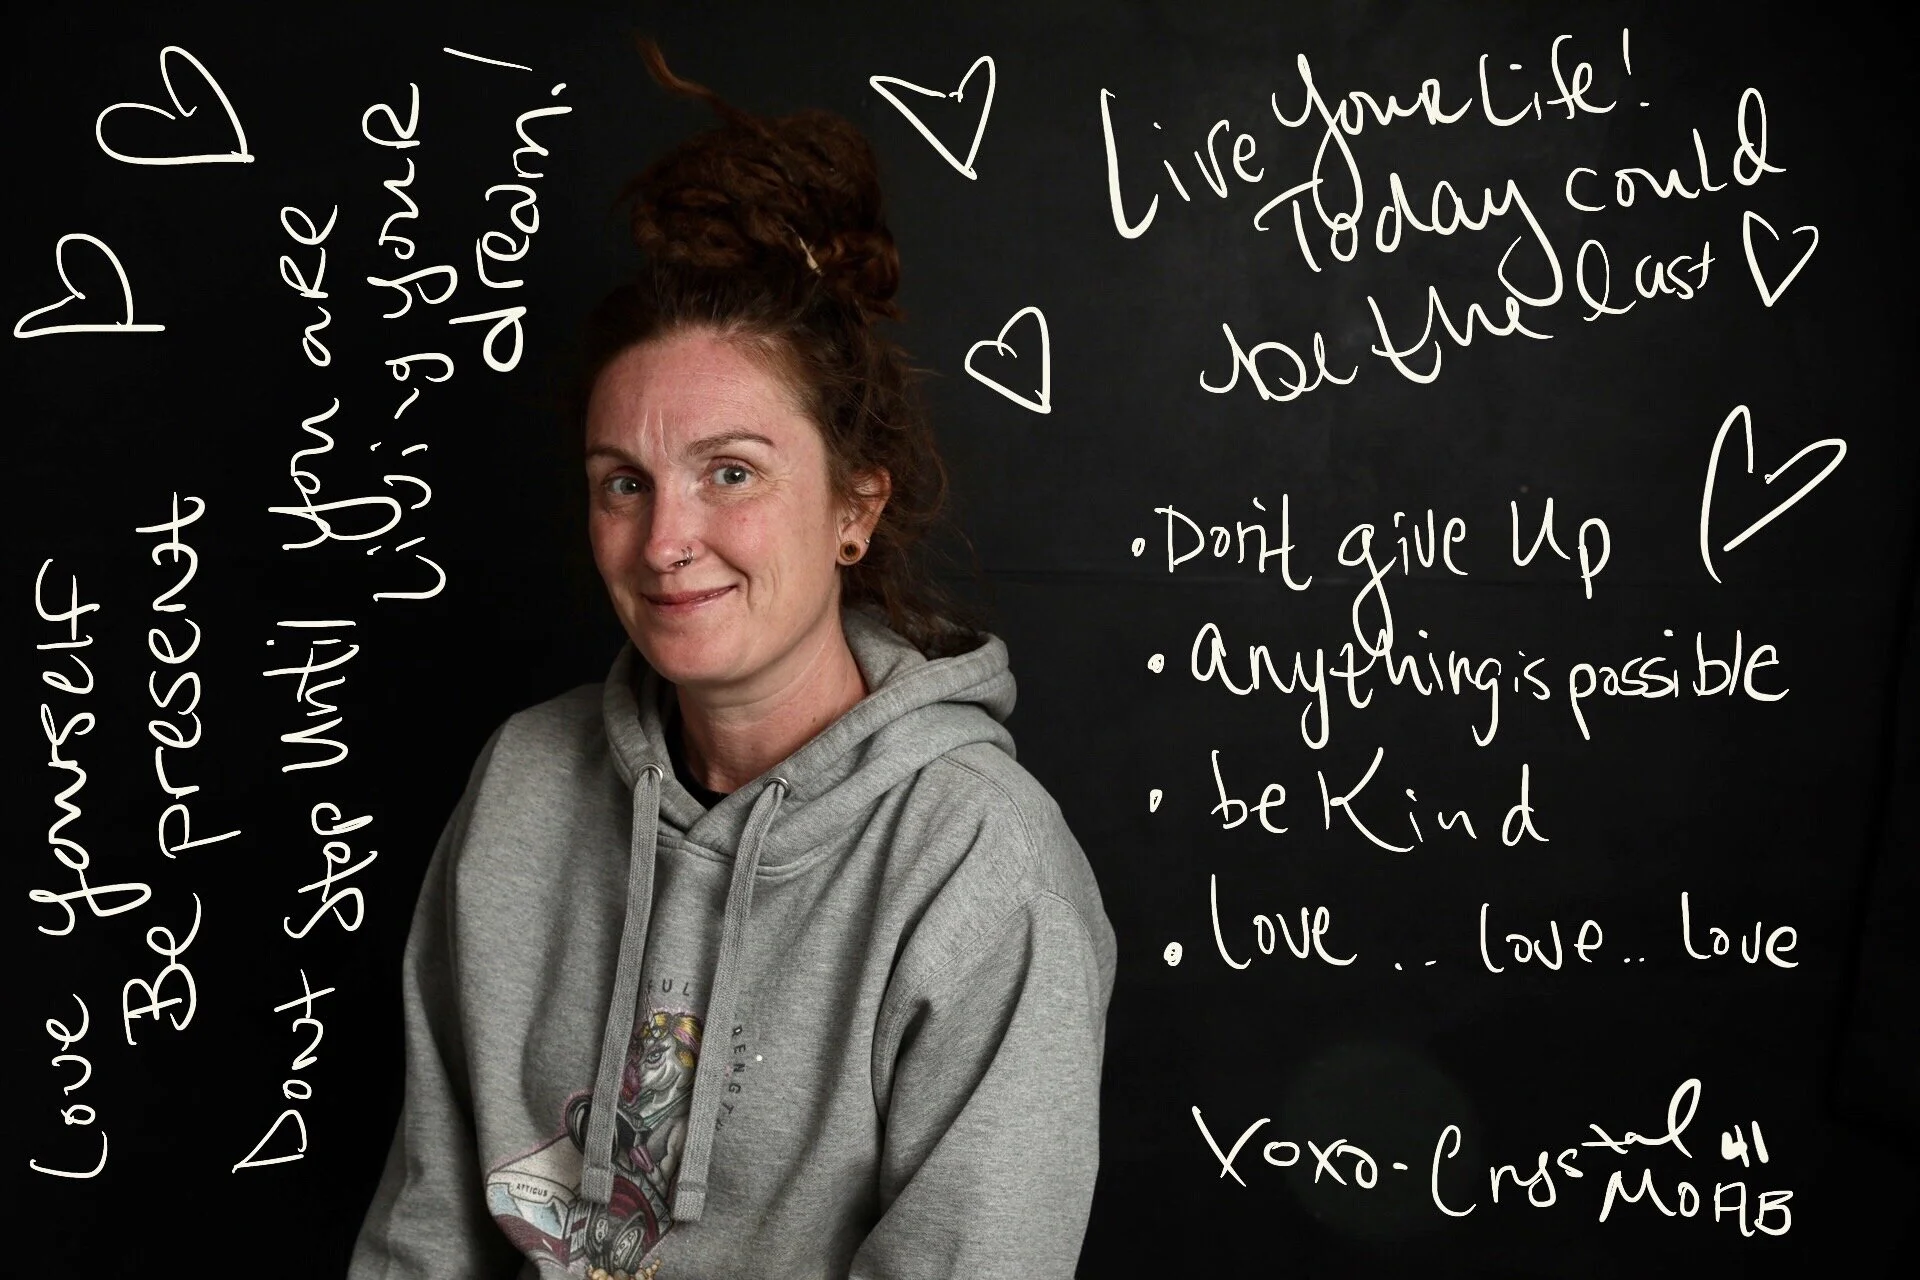 Love Yourself
Be present
Dont Stop Until You are
Living your
dream!
Live Your Life!
Today could
be the last
• Don't give Up
• Anything is possible
• be Kind
• Love .. Love .. Love
XOXO - Crystal 41
MOAB
ATTICUS